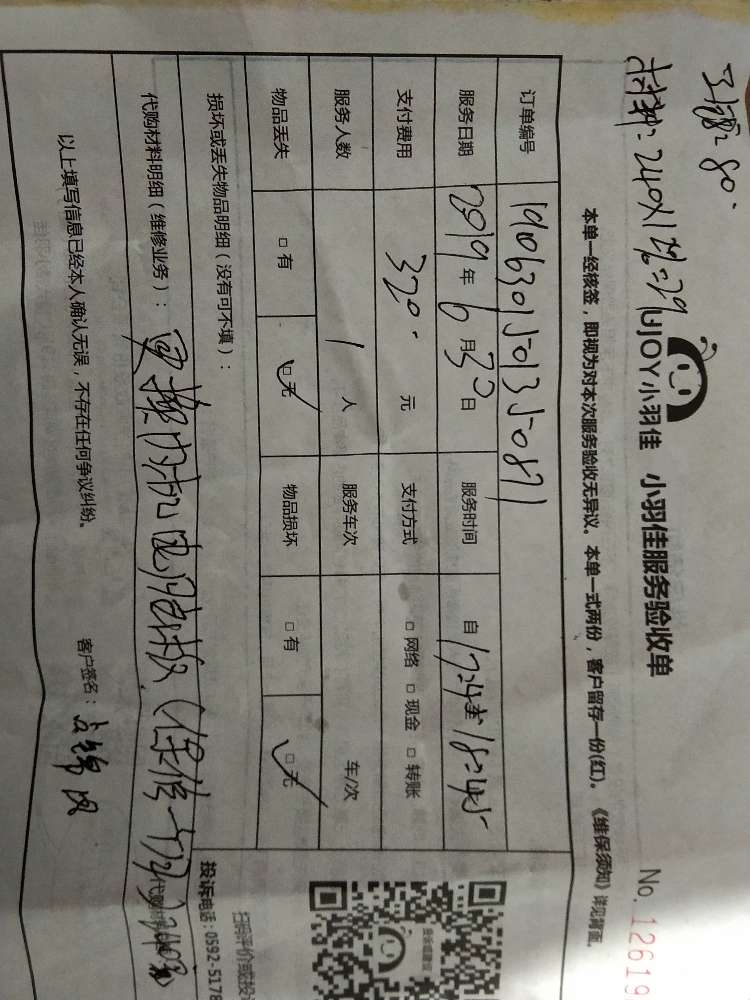 工钱:80.
材料:240X1
UJOY小羽佳 小羽佳服务验收单
No. 12619
本单一经核签，即视为对本次服务验收无异议。本单一式两份，客户留存一份(红)。《维保须知》详见背面。
订单编号
服务日期 2019年6月30日 服务时间 自17:45至18:45
支付费用 320.元 支付方式 □网络 □现金 □转账
服务人数 1人 服务车次 车/次
物品丢失 □有 □无 物品损坏 □有 □无
损坏或丢失物品明细（没有可不填）：
代购材料明细（维修业务）： 更换内机电脑板（保修一个月）240元
代购材料
以上填写信息已经本人确认无误，不存在任何争议纠纷。 客户签名：
扫码评价或投
投诉电话：0592-5178